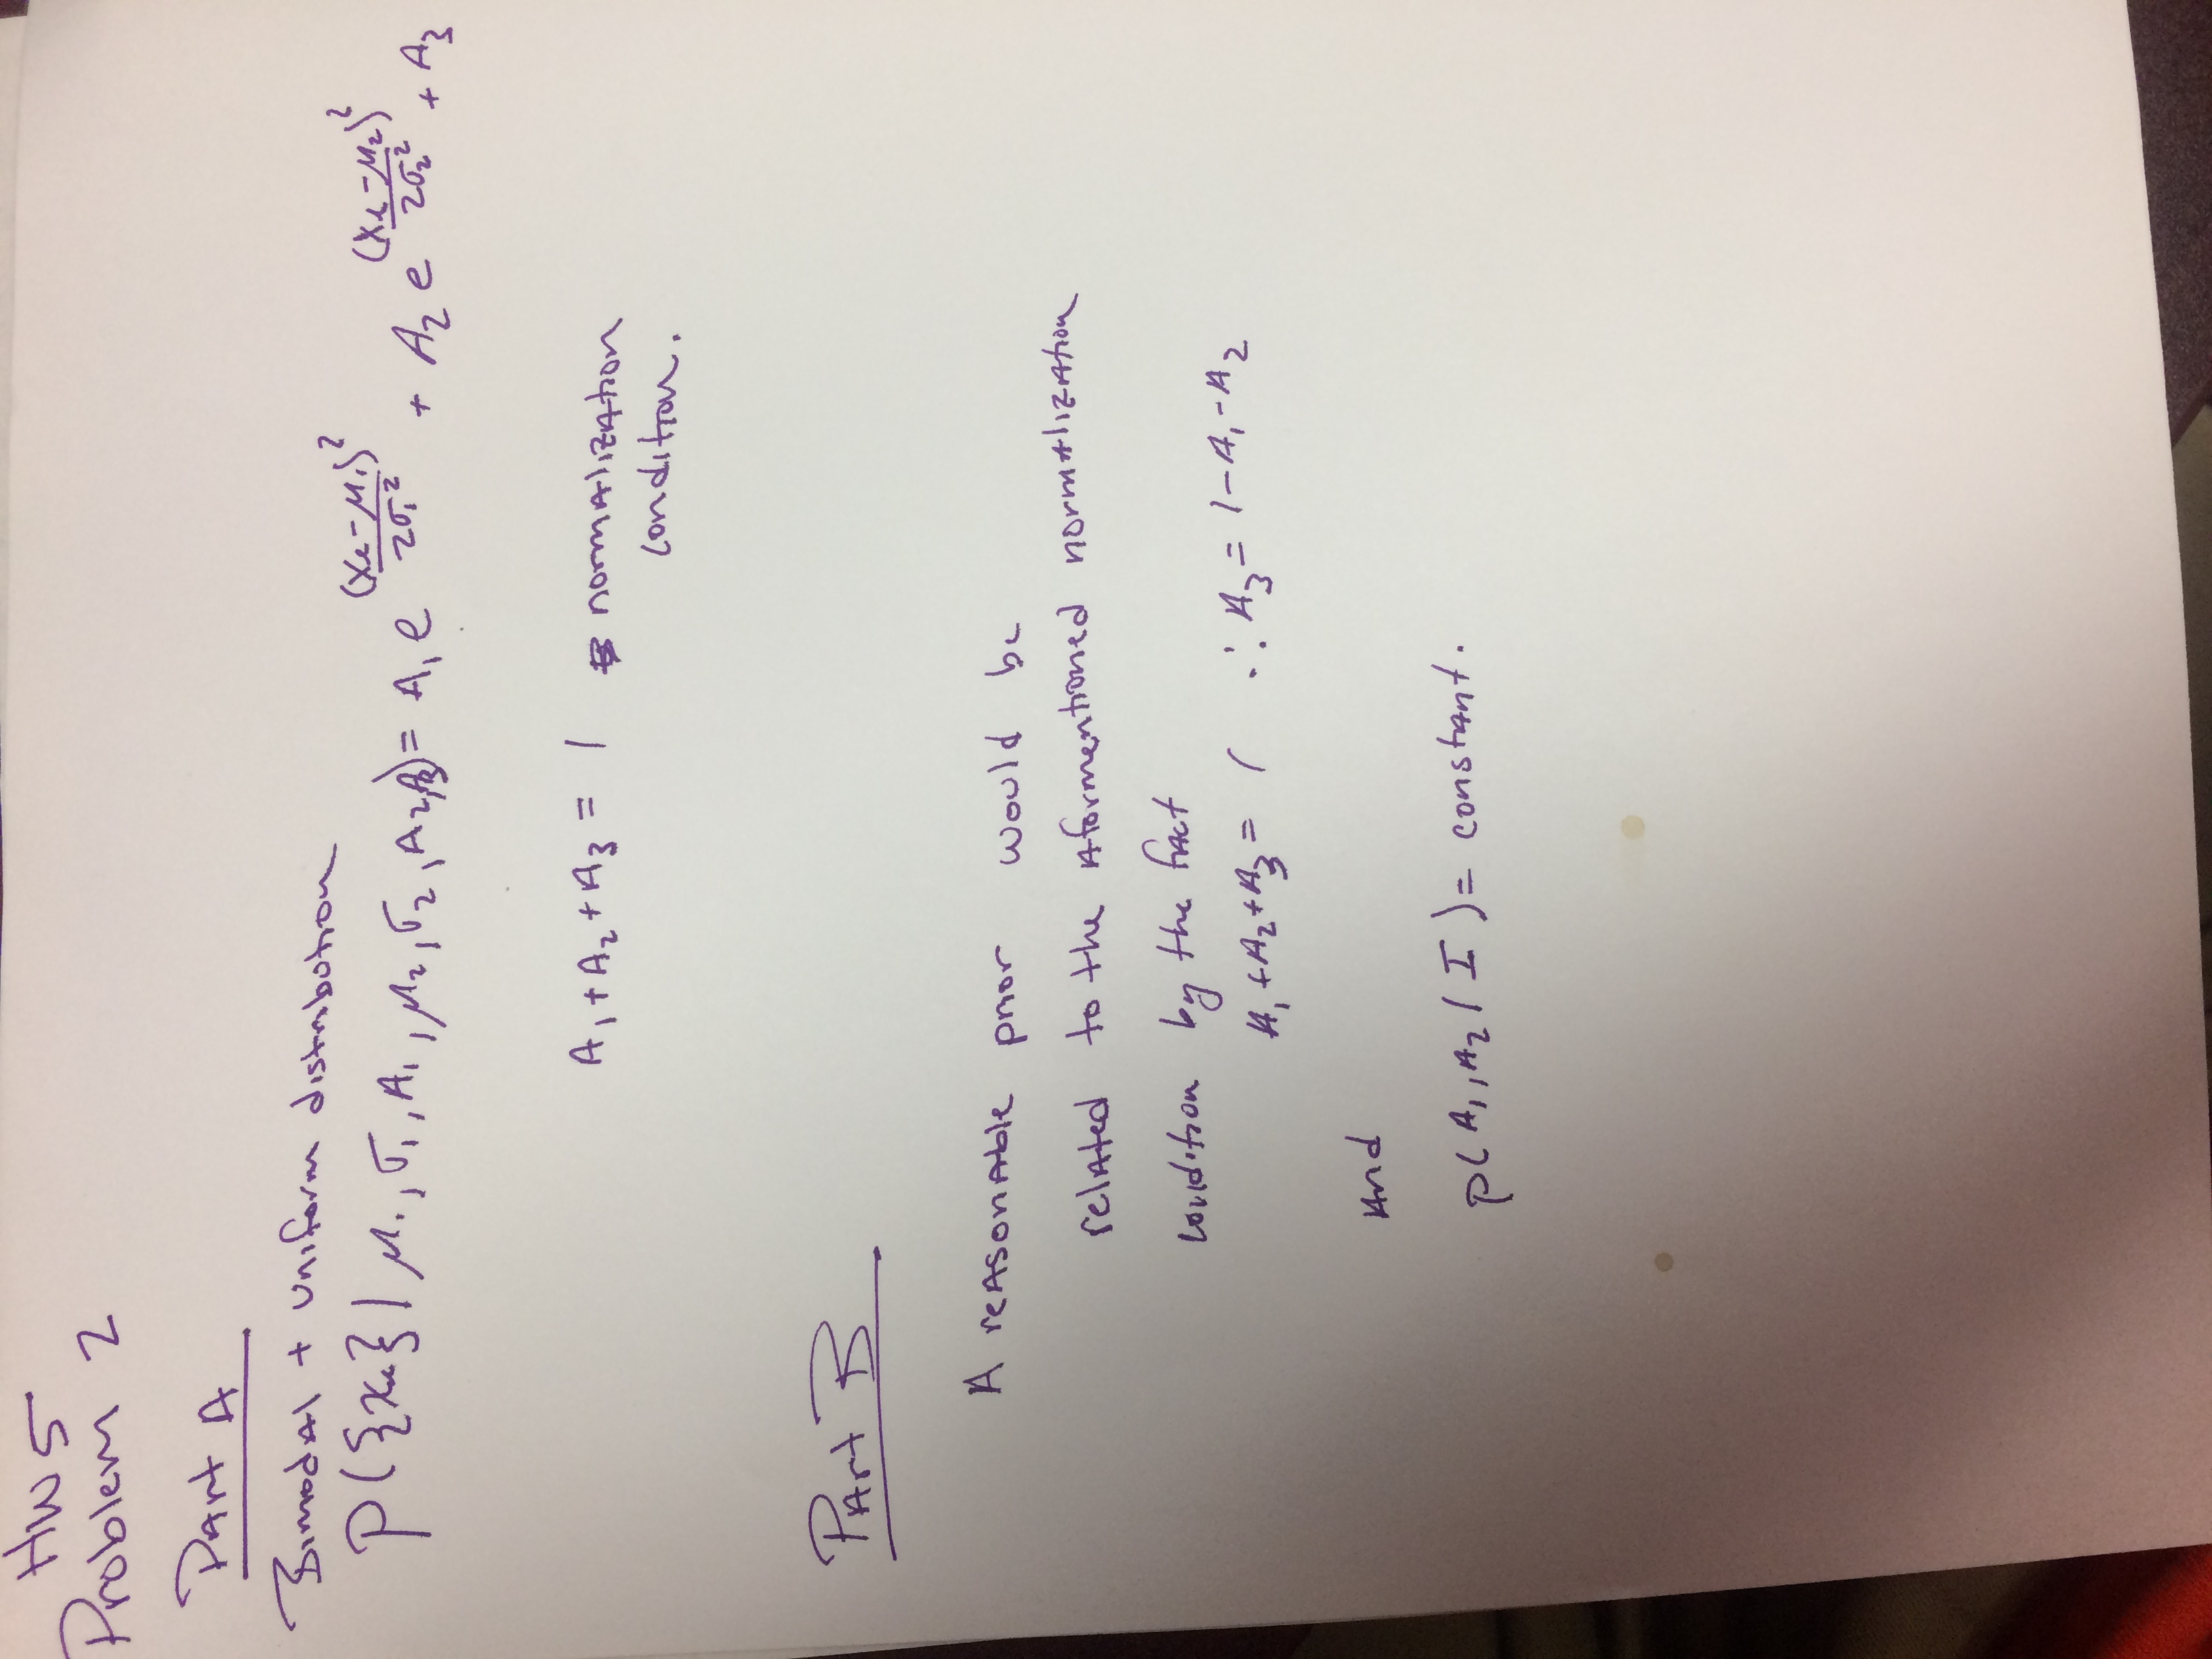 HW 5
Problem 2
Part A
Bimodal + uniform distribution
P({xi}|μ1,σ1,A1,μ2,σ2,A2,A3) = A1 e^((xi-μ1)²/2σ1²) + A2 e^((xi-μ2)²/2σ2²) + A3
A1 + A2 + A3 = 1 normalization
condition.
Part B
A reasonable prior would be
related to the aformentioned normalization
condition by the fact
A1 + A2 + A3 = 1 ∴ A3 = 1 - A1 - A2
and
P(A1, A2 | I) = constant.